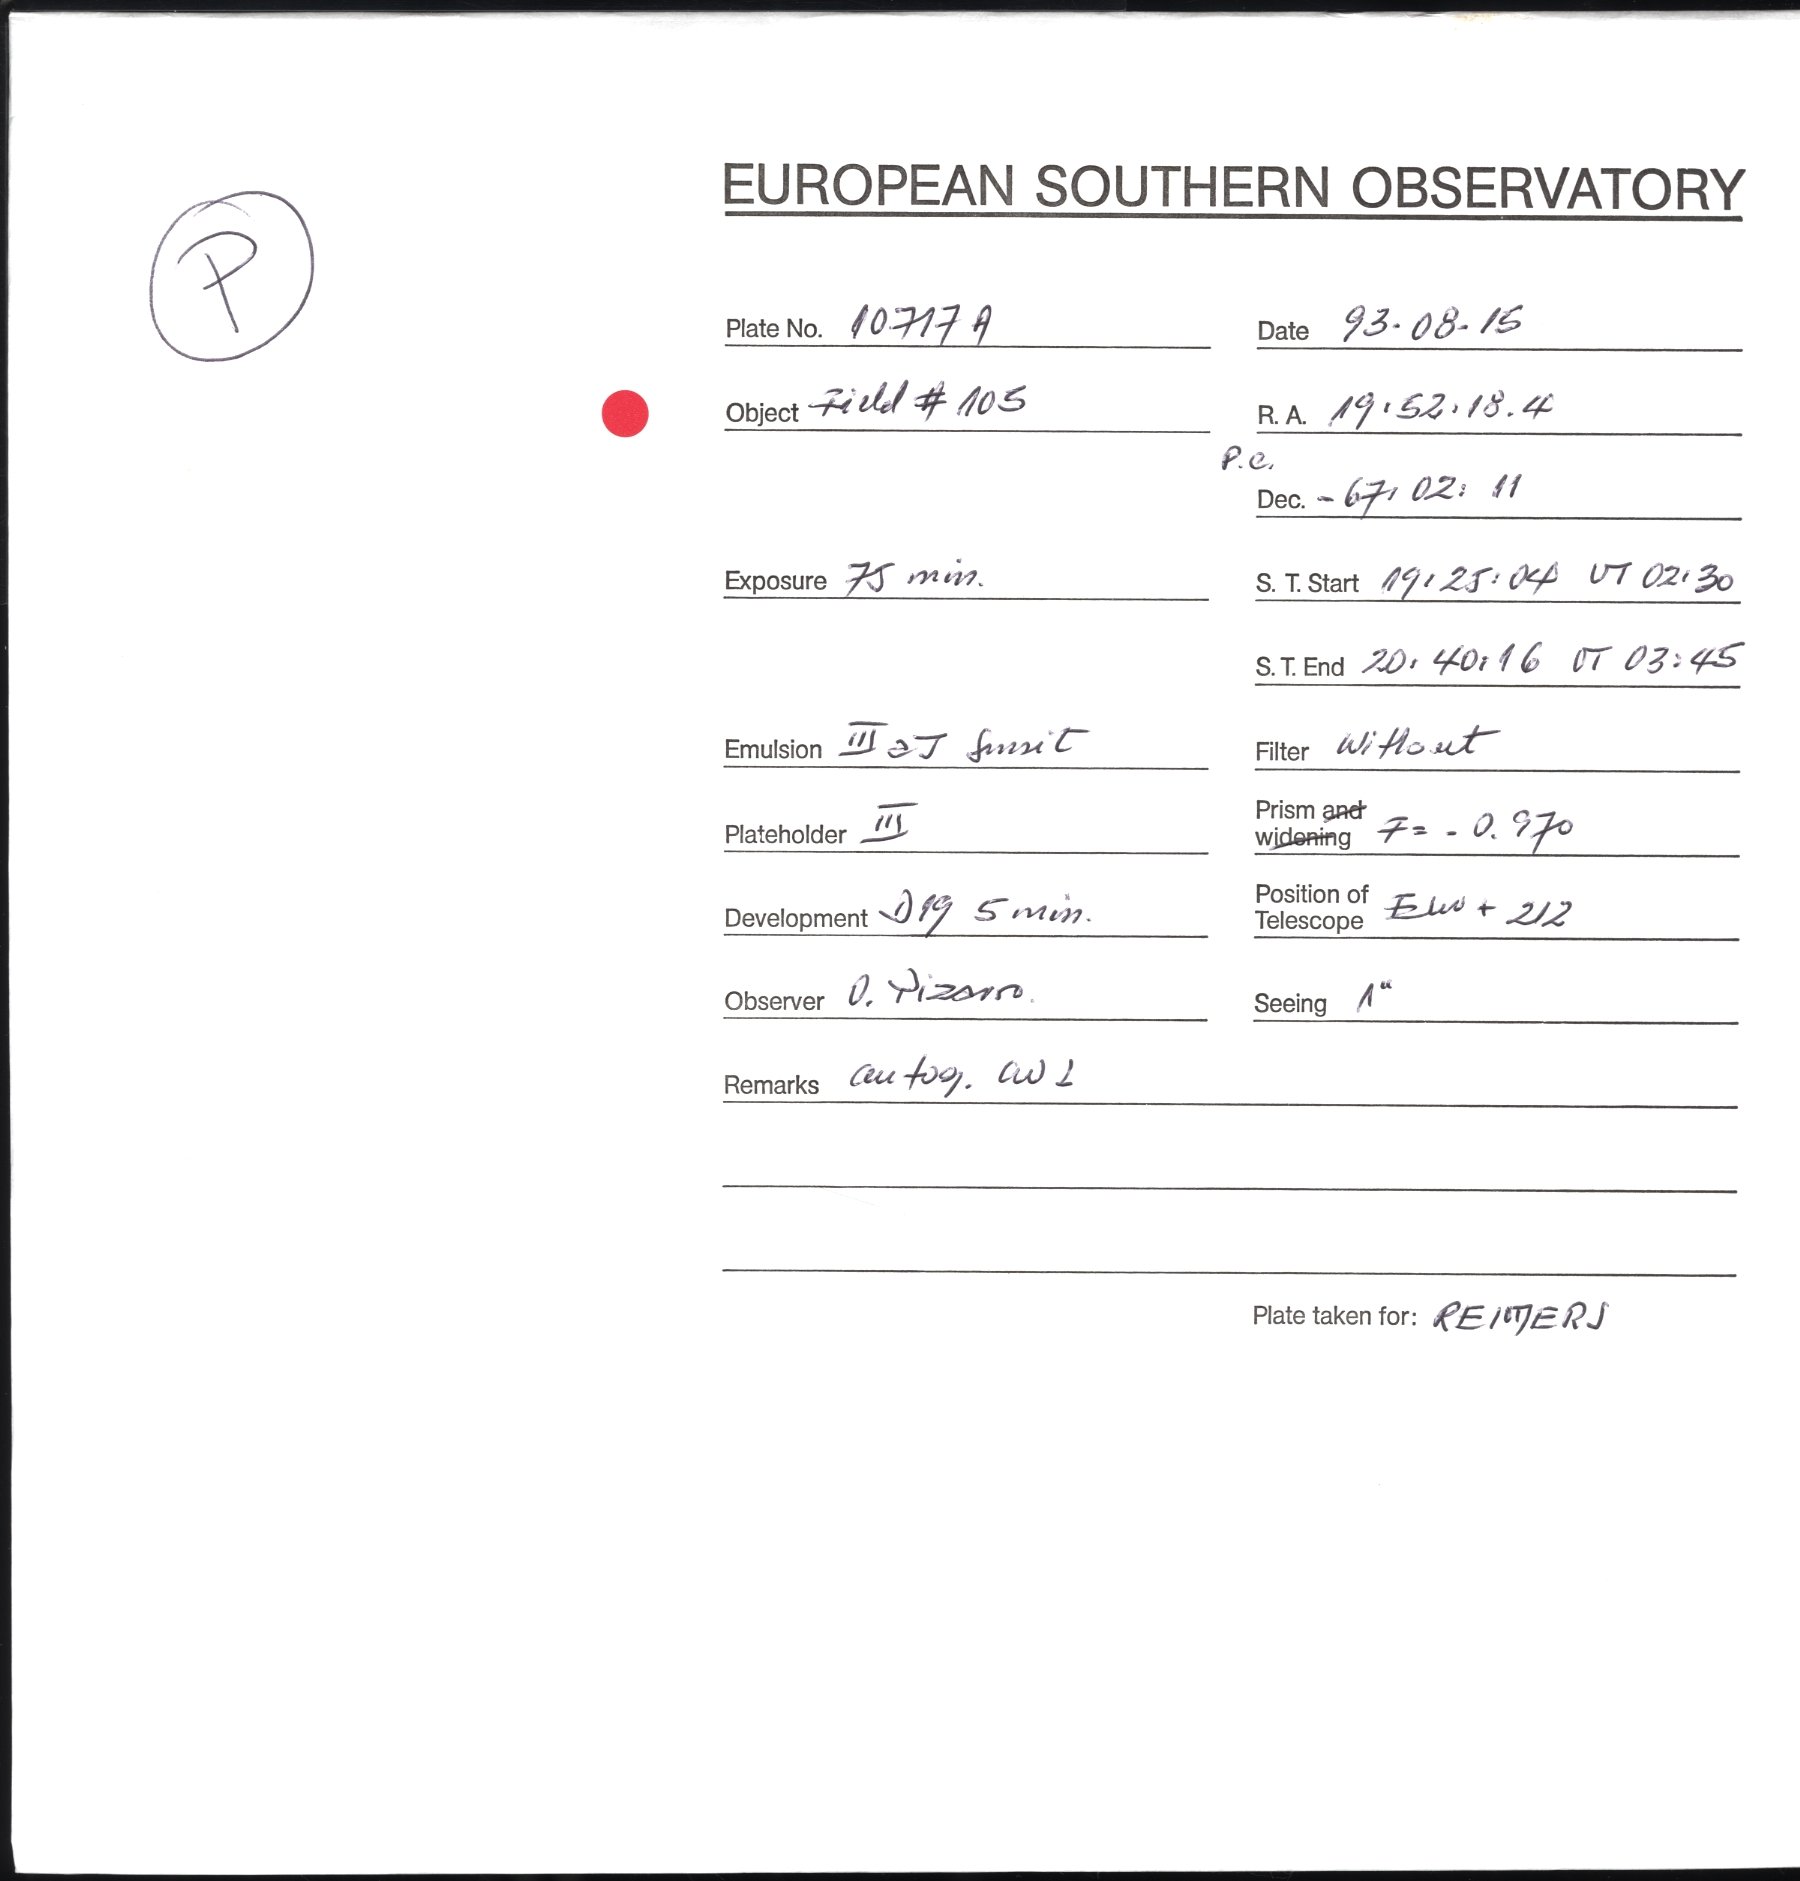 EUROPEAN SOUTHERN OBSERVATORY
P
Plate No. 10717 A Date 93-08-15
Object Field # 105 R. A. 19:52:18.4
P.e.
Dec. -67: 02: 11
Exposure 75 min. S. T. Start 19:25:04 UT 02:30
S. T. End 20:40:16 UT 03:45
Emulsion III aJ Filter Without
Plateholder III Prism and widening F= - 0.970
Development D19 5 min. Position of Telescope + 212
Observer O. Pizarro. Seeing 1"
Remarks autog.
Plate taken for: REIMERS